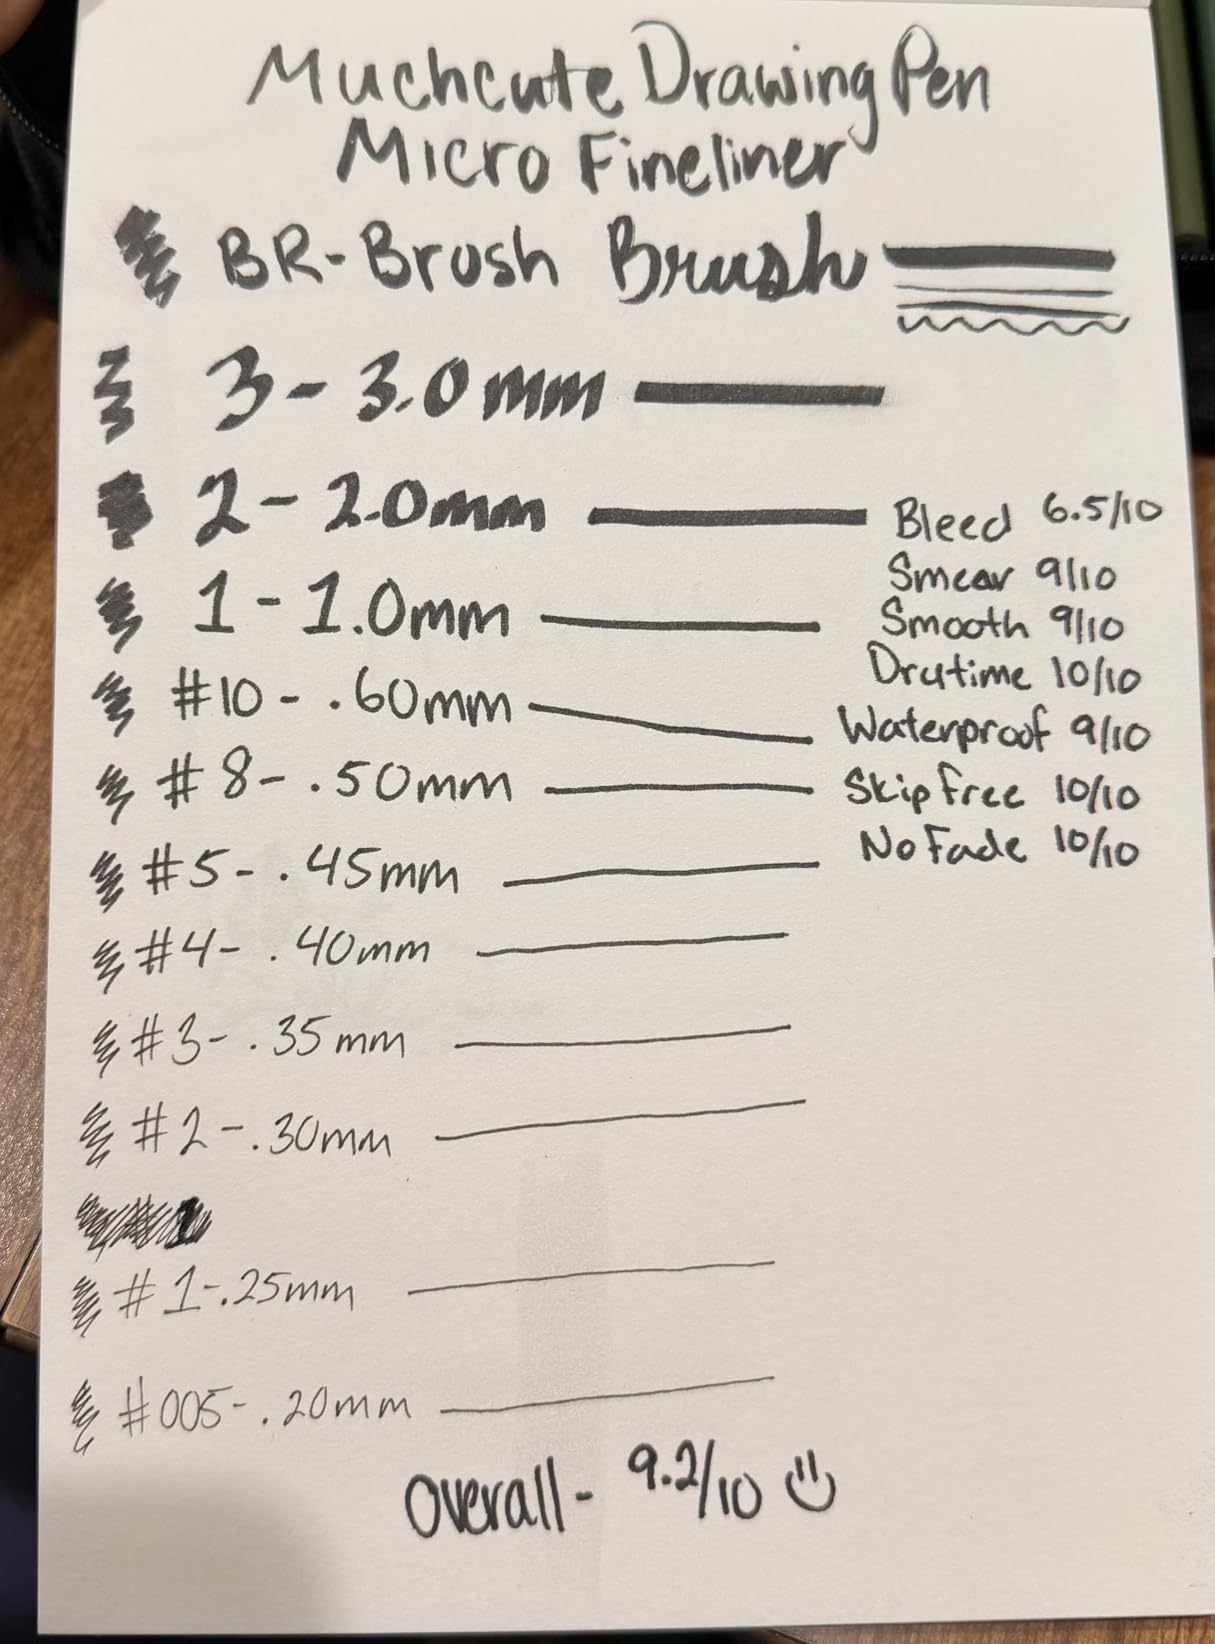 Muchcute Drawing Pen
Micro Fineliner
BR-Brush Brush
3 - 3.0mm
2 - 2.0mm
1 - 1.0mm
#10 - .60mm
#8 - .50mm
#5 - .45mm
#4 - .40mm
#3 - .35mm
#2 - .30mm
#1 - .25mm
#005 - .20mm
Bleed 6.5/10
Smear 9/10
Smooth 9/10
Drytime 10/10
Waterproof 9/10
Skip free 10/10
No Fade 10/10
Overall - 9.2/10